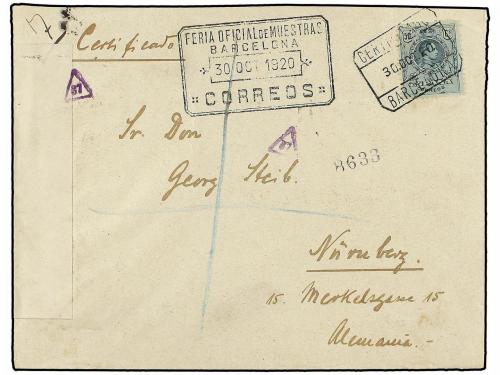 Certificado
FERIA OFICIAL DE MUESTRAS
BARCELONA
30 OCT 1920
CORREOS
CERTIFICADO
BARCELONA
37
Sr. Don
8633
Georg Steib.
Nürnberg.
15. Merkelsgasse 15
Alemania.-